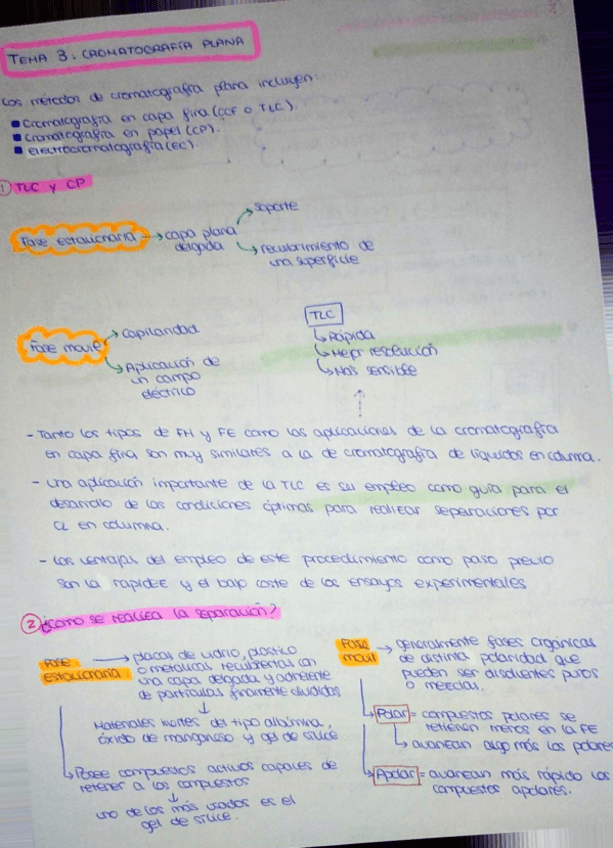 TEMA 3: CROMATOGRAFÍA PLANA
Los métodos de cromatografía plana incluyen:
Cromatografía en capa fina (CCF o TLC).
Cromatografía en papel (CP).
Electrocromatografía (EC).
1 TLC y CP
Fase estacionaria → capa plana
delgada
→ soporte
→ recubrimiento de
una superficie
Fase móvil
→ capilaridad
→ Aplicación de
un campo
eléctrico
TLC
↳ Rápida
↳ Mejor resolución
↳ Más sensible
- Tanto los tipos de FM y FE como las aplicaciones de la cromatografía
en capa fina son muy similares a la de cromatografía de líquidos en columna.
- Una aplicación importante de la TLC es su empleo como guía para el
desarrollo de las condiciones óptimas para realizar separaciones por
CL en columna.
- Las ventajas del empleo de este procedimiento como paso previo
son la rapidez y el bajo coste de los ensayos experimentales
2 ¿Cómo se realiza la separación?
Fase
estacionaria
→ placas de vidrio, plástico
o metálicas recubiertas con
una capa delgada y adherente
de partículas finamente divididas
↓
Materiales inertes del tipo albúmina,
óxido de manganeso y gel de sílice
↳ Posee compuestos activos capaces de
retener a los compuestos
↓
uno de los más usados es el
gel de sílice.
Fase
móvil
→ generalmente fases orgánicas
de distinta polaridad que
pueden ser disolventes puros
o mezclas.
↳ Polar = compuestos polares se
retienen menos en la FE
↳ avanzan algo más los polares
↳ Apolar = avanzan más rápido los
compuestos apolares.